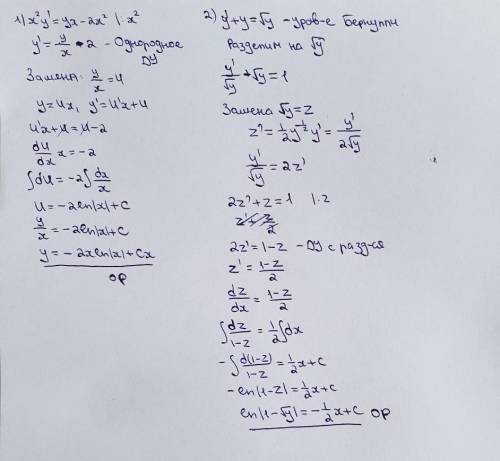 1) x²y' = yx - 2x² |: x²
y' = y/x - 2 - Однородное
ДУ
Замена: y/x = u
y = ux, y' = u'x + u
u'x + u = u - 2
du/dx x = -2
∫du = -2∫dx/x
u = -2ln|x| + c
y/x = -2ln|x| + c
y = -2xln|x| + Cx
ОР
2) y' + y = √y - уров-е Бернулли
Разделим на √y
y'/√y + √y = 1
Замена √y = z
z' = 1/2 y^(-1/2) y' = y'/(2√y)
y'/√y = 2z'
2z' + z = 1 |: 2
2z' = 1 - z - ДУ с разд-ся
z' = (1-z)/2
dz/dx = (1-z)/2
∫dz/(1-z) = 1/2 ∫dx
-∫d(1-z)/(1-z) = 1/2 x + c
-ln|1-z| = 1/2 x + c
ln|1-√y| = -1/2 x + c ОР